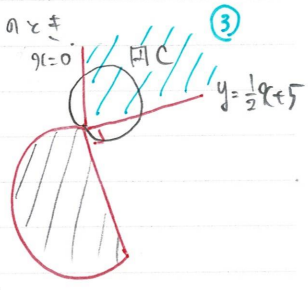 のとき
③
x=0
円C
y=½x+5